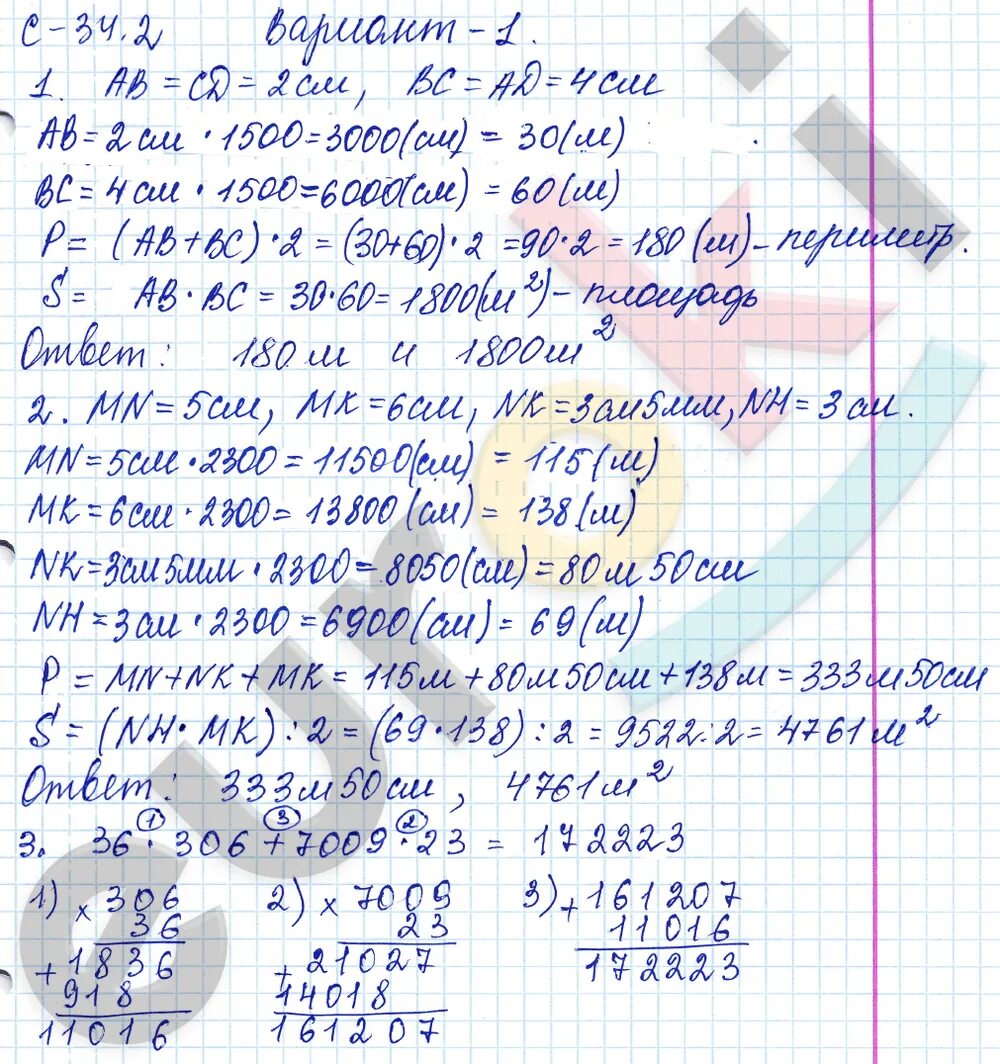 С-34.2 Вариант-1.
1. AB = CD = 2 см, BC = AD = 4 см
AB = 2 см · 1500 = 3000 (см) = 30 (м)
BC = 4 см · 1500 = 6000 (см) = 60 (м)
P = (AB + BC) · 2 = (30+60) · 2 = 90 · 2 = 180 (м) - периметр.
S = AB · BC = 30 · 60 = 1800 (м²) - площадь
Ответ: 180 м и 1800 м²
2. MN = 5 см, MK = 6 см, NK = 3 см 5 мм, NH = 3 см.
MN = 5 см · 2300 = 11500 (см) = 115 (м)
MK = 6 см · 2300 = 13800 (см) = 138 (м)
NK = 3 см 5 мм · 2300 = 8050 (см) = 80 м 50 см
NH = 3 см · 2300 = 6900 (см) = 69 (м)
P = MN + NK + MK = 115 м + 80 м 50 см + 138 м = 333 м 50 см
S = (NH · MK) : 2 = (69 · 138) : 2 = 9522 : 2 = 4761 м²
Ответ: 333 м 50 см, 4761 м²
① ③ ②
3. 36 · 306 + 7009 · 23 = 172223
1) × 306 2) × 7009 3) + 161207
36 23 11016
+ 1836 + 21027 172223
918 14018
11016 161207
euroki